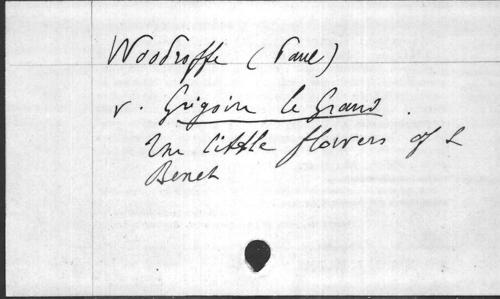 Woodroffe (Paul)
v. Grégoire le Grand.
The little flowers of S
Benet